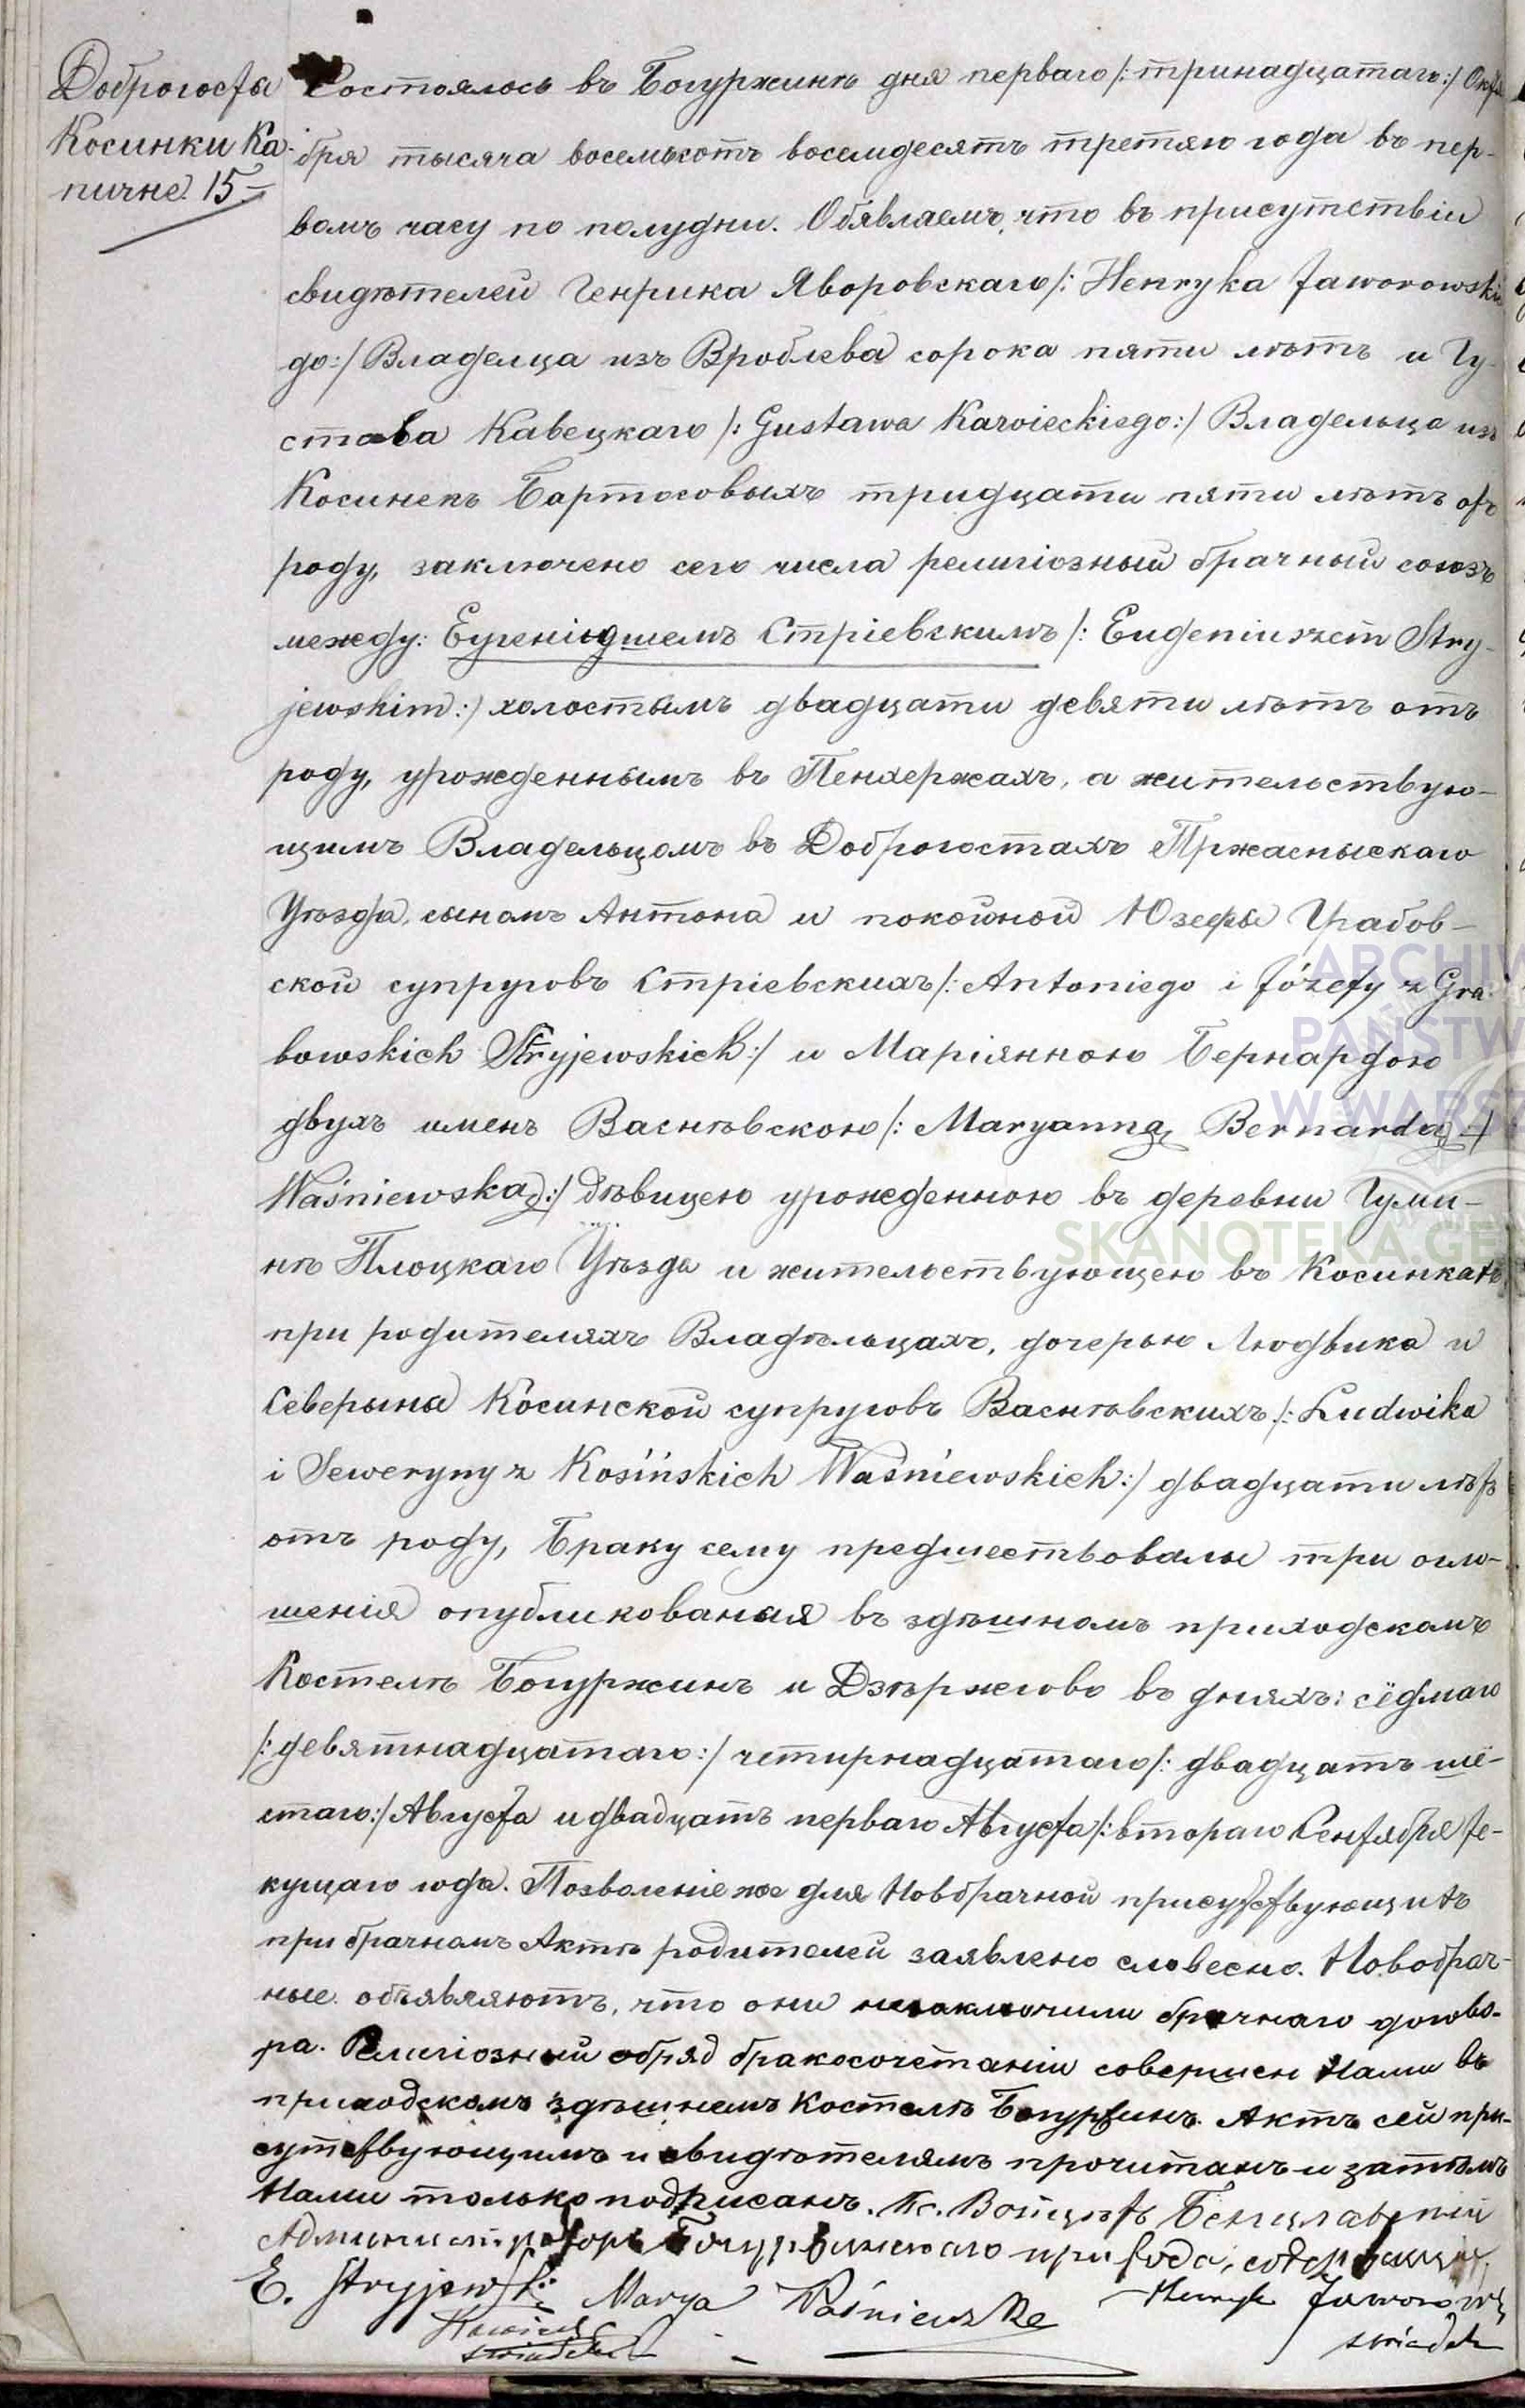 Доброгосты
Косинки Ка-
пичне. 15
Состоялось въ Богуржинѣ дня перваго /:тринадцатаго:/ Октя-
бря тысяча восемьсотъ восемдесятъ третяго года въ пер-
вомъ часу по полудни. Обявляемъ, что въ присутствіи
свидѣтелей Генрика Яворовскаго /: Henryka Jaworowskie
go:/ Владелца изъ Вроблева сорока пяти лѣтъ и Гу-
става Кавецкаго /: Gustawa Kawieckiego:/ Владельца изъ
Косинекъ Бартосовыхъ тридцати пяти лѣтъ отъ
роду, заключено сего числа религіозный брачный союзъ
между: Еугеніушемъ Стріевскимъ /: Eugeniuszem Stry-
jewskim:/ холостымъ двадцати девяти лѣтъ отъ
роду, урожденнымъ въ Пенхержахъ, а жительствую-
щимъ Владельцомъ въ Доброгостахъ Пржаснысскаго
Уѣзда, сыномъ Антона и покойной Юзефы Грабов-
ской супруговъ Стріевскихъ /: Antoniego i Józefy z Gra-
bowskich Stryjewskich:/ и Маріянною Бернардою
двухъ именъ Васнѣвскою /: Maryanną Bernardą
Waśniewską:/ дѣвицею урожденною въ деревни Гуми-
нѣ Плоцкаго Уѣзда и жительствующею въ Косинкахъ
при родителяхъ Владѣльцахъ, дочерью Людвика и
Северыны Косинской супруговъ Васнѣвскихъ /: Ludwika
i Seweryny z Kosińskich Waśniewskich:/ двадцати лѣтъ
отъ роду, Браку сему предшествовалы три огло-
шенія опубликованая въ здѣшномъ приходскомъ
Костелѣ Богуржинъ и Дзѣржгово въ дняхъ: сёдмаго
/:девятнадцатаго:/ четирнадцатаго /: двадцатъ шё-
стаго:/ Августа и двадцатъ перваго Августа /: втораго Сентября те-
кущаго года. Позволеніе же для Новобрачной присутствующихъ
при брачномъ Актѣ родителей заявлено словесно. Новобрач-
ные объявляютъ, что они незаключили брачнаго догово-
ра. Религіозный обряд бракосочетаніи совершен Нами въ
приходскомъ здѣшнемъ Костелѣ Богуржинъ. Актъ сей при-
сутствующимъ и свидѣтелямъ прочитанъ и затѣмъ
Нами только подписанъ. Кс. Войцѣхъ
Администраторъ Богуржинскаго прихода,
E. Stryjewski Marya Waśniewska Henryk Jaworowski
Kawiecki
świadek świadek
ARCHIW
PAŃSTW
W WARSZ
SKANOTEKA.GE